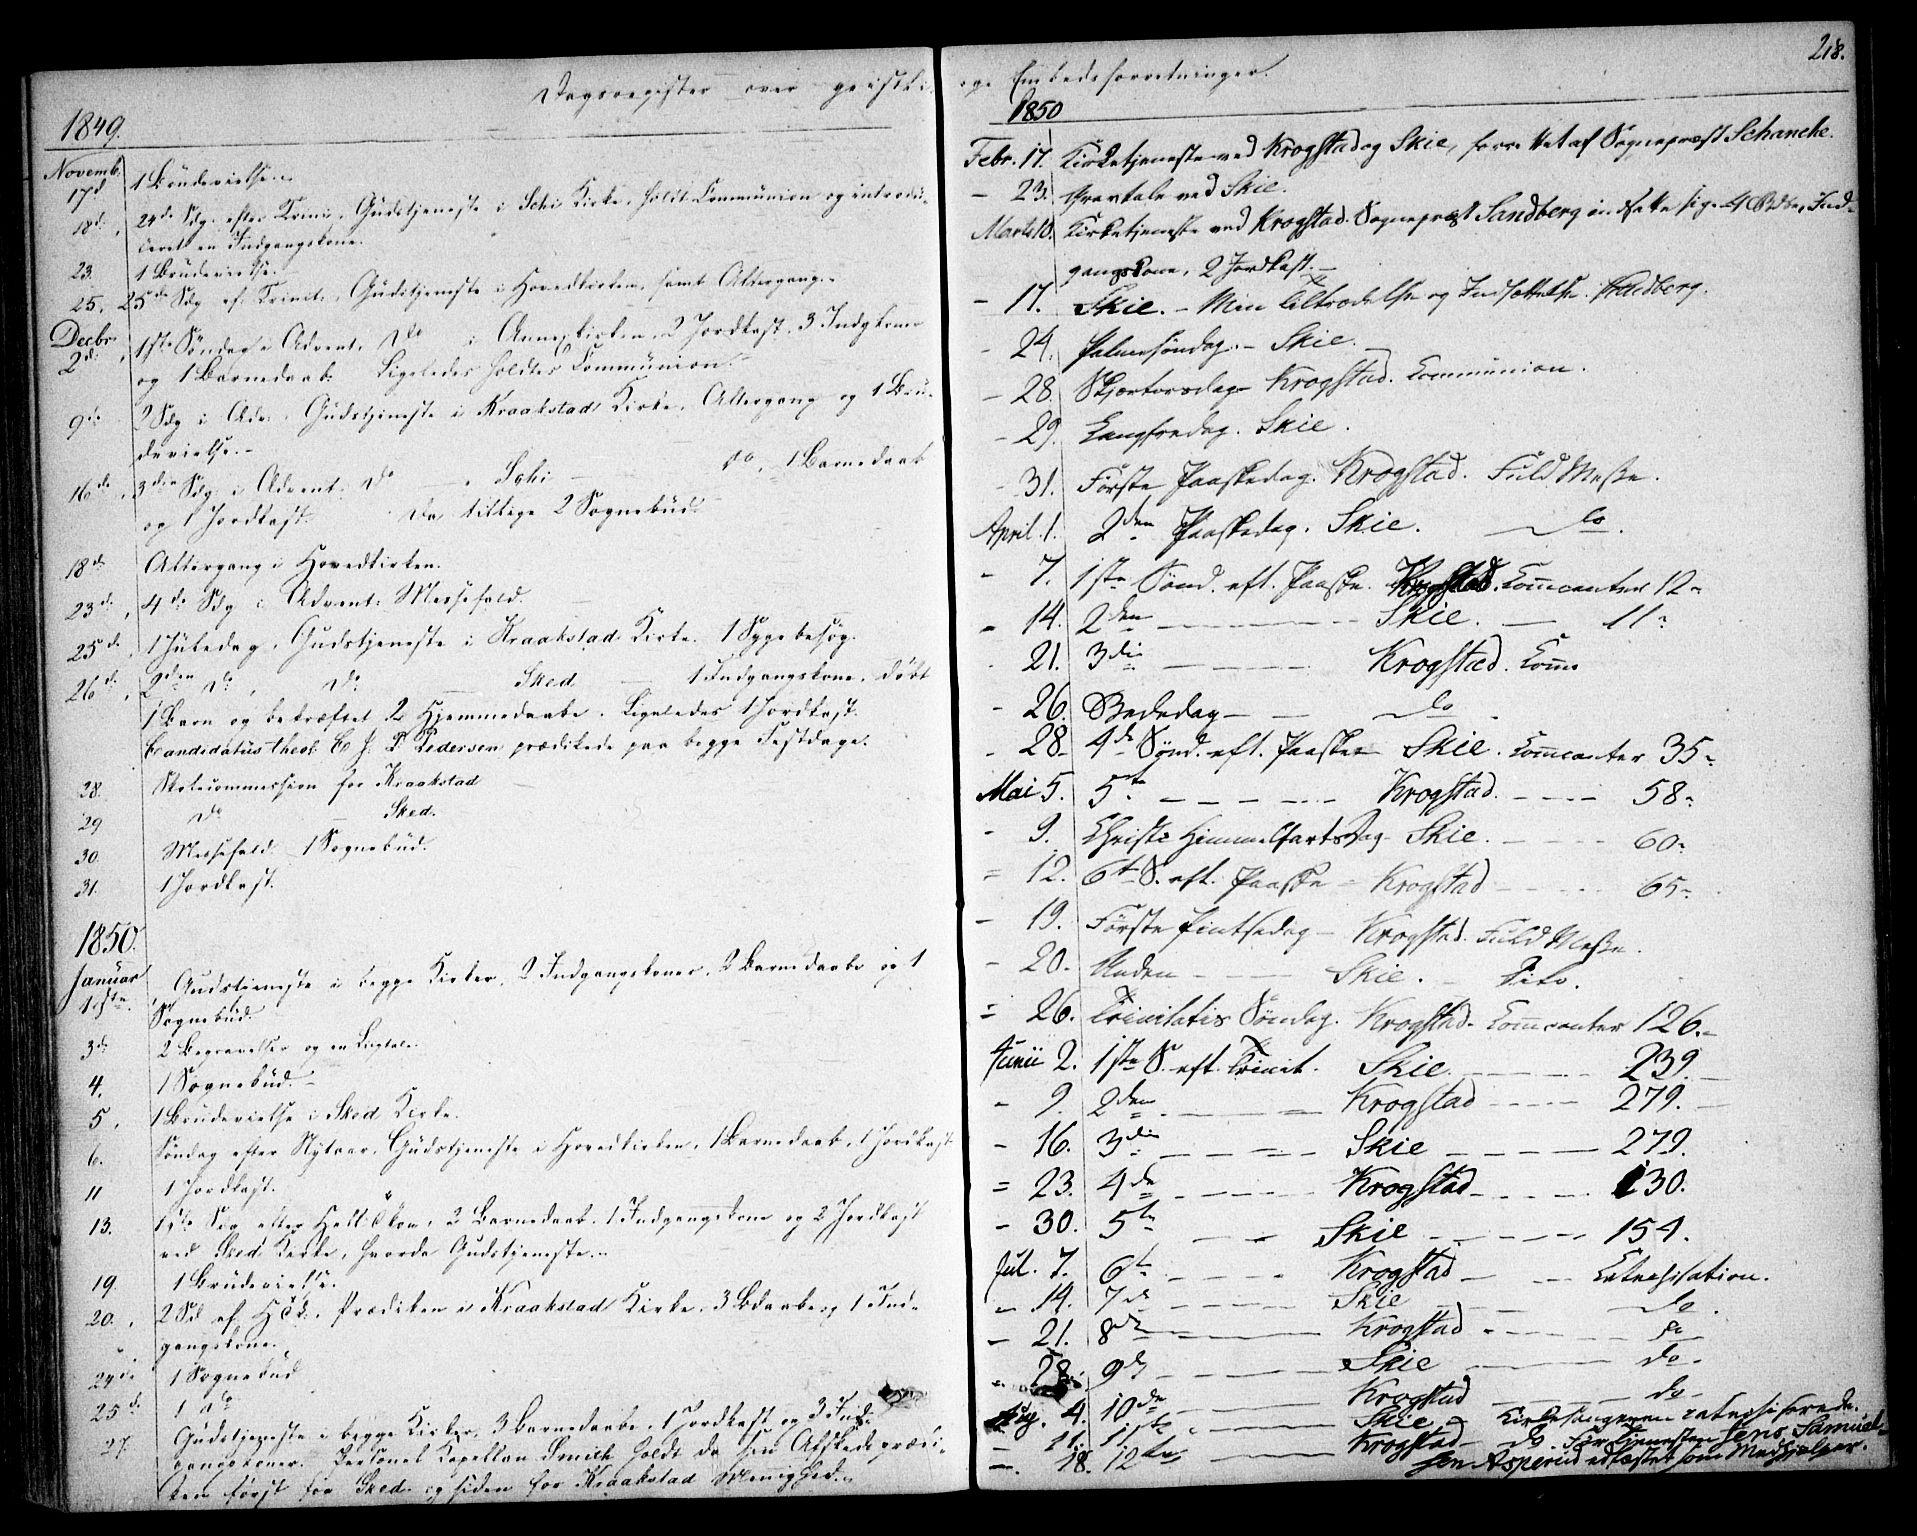 Dagsregister over geistlige Embedsforretninger.
218.
1849.
Novemb. 17d 1 Brudevielse.
18d. 24de Sdg. efter Trini. Gudstjeneste i Schi Kirke, holdt Communion og introdu-
ceret en Indgangskone.
23. 1 Brudevielse.
25. 25de Sdg ef. Trinit. Gudstjeneste i Hovedkirken, samt Altergang.
Decbr. 2d. 1ste Søndag i Advent. Do i Annexkirken, 2 Jordkast, 3 Indgkoner
og 1 Barnedaab. Ligeledes holdtes Communion.
9de 2 Sdg i Adv. Gudstjeneste i Kraakstad Kirke, Altergang og 1 Bru-
devielse.
16de. 3die Sdg i Advent. Do - Schi - do, 1 Barnedaab
og 1 Jordkast. Da tillige 2 Sognebud.
18d. Altergang i Hovedkirken.
23d. 4de Sdg i Advent. Messefald.
25d. 1 Juledag. Gudstjeneste i Kraakstad Kirke. 1 Sygebesøg.
26d. 2den Do, Do - Sked - 1 Indgangskone, døbt
1 Barn og bekræftet 2 Hjemmedaabe. Ligeledes 1 Jordkast.
Candidatus theol. Pedersen prædikede paa begge Festdage.
28. Skolecommession for Kraakstad
29 Do - Sked.
30. Messefald. 1 Sognebud.
31. 1 Jordkast.
1850.
Januar 1ste. Gudstjeneste i begge Kirker, 2 Indgangskoner, 2 Barnedaabe og 1
Sognebud.
3d. 2 Begravelser og en Ligtale.
4. 1 Sognebud.
5. 1 Brudevielse i Sked Kirke.
6. Søndag efter Nytaar. Gudstjeneste i Hovedkirken, 1 Barnedaab, 1 Jordkast
11 1 Jordkast.
13. 1ste Sdg efter Hell. 3 Kon. 2 Barnedaab, 1 Indgangskone og 2 Jordkast
ved Sked Kirke, hvorda Gudstjeneste.
19. 1 Brudevielse.
20. 2 Sd ef H3K. Prædiken i Kraakstad Kirke. 3 Bdaabe og 1 Ind-
gangskone.
24de 1 Sognebud
25d. 1 do
27. Gudstjeneste i begge Kirker, 3 Barnedaabe, 1 Jordkast og 3 Ind-
gangskoner. Personel Kapellan Smith holdt da sin Afskedsprædi-
ken først for Sked og siden for Kraakstad Menighed.
1850
Febr. 17. Kirketjeneste ved Krogstad og Skie, forrettet af Sogneprest Schanche.
- 23. ved Skie.
Marts 10. Kirketjeneste ved Krogstad. Sogneprest Sandberg indsatte sig. 4 Ind-
gangskone, 2 Jordkast.
- 17. Skie. - Min Tiltrædelse og Indsættelse. Sandberg.
- 24. Palmesøndag. - Skie.
- 28. Skjærtorsdag - Krogstad. Communion.
- 29. Langfredag. Skie.
- 31. Første Paaskedag. Krogstad. Fuld Messe.
April 1. 2den Paaskedag. Skie. - Do.
- 7. 1ste Sønd. eft. Paaske. Krogstad. Commcanter 12
- 14. 2den - - - Skie. - 11
- 21. 3die - - - Krogstad. Comm
- 26. Bededag - - do
- 28. 4de Sønd. eft. Paaske - Skie. Commcanter 35
Mai 5. 5te - - - Krogstad. - - - 58
- 9. Christi Himmelfartsdag - Skie. - - - 60
- 12. 6te S. eft. Paaske - Krogstad - - - 65
- 19. Første Pintsedag - Krogstad. Fuld Messe.
- 20. Anden - - Skie. - Dito.
- 26. Trinitatis Søndag. Krogstad. Commcanter 126.
Junii 2. 1ste S. eft. Trinit. Skie. - - - 239.
- 9. 2den - - - Krogstad - - - 279.
- 16. 3die - - - Skie - - - 279.
- 23. 4de - - - Krogstad - - - 130.
- 30. 5te - - - Skie - - - 154.
Jul. 7. 6te - - - Krogstad - - Catechisation.
- 14. 7de - - - Skie - - do.
- 21. 8de - - - Krogstad - - do
- 28. 9de - - - Skie - - do.
Aug. 4. 10de - - - Krogstad - - do
- 11. 11te - - Skie - Kirkesangeren catechiserede.
- 18. 12te - - Krogstad - Do Jens Samuel-
sen Asperud som Medhjelper.